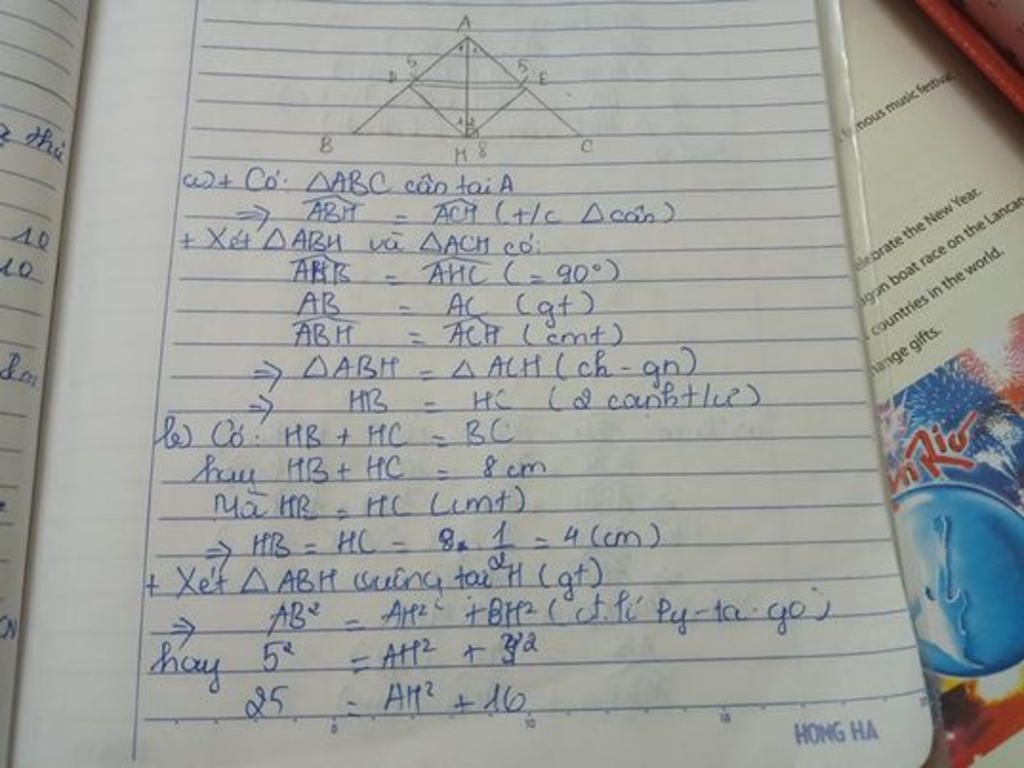 A
5 5
D E
B H 8 C
a) + Có: △ABC cân tại A
⇒ ABH = ACH (t/c △cân)
+ Xét △ABH và △ACH có:
AHB = AHC (= 90°)
AB = AC (gt)
ABH = ACH (cmt)
⇒ △ABH = △ACH (ch - gn)
⇒ HB = HC (2 cạnh t/ư)
b) Có: HB + HC = BC
hay HB + HC = 8 cm
Mà HB = HC (cmt)
⇒ HB = HC = 8. 1/2 = 4 (cm)
+ Xét △ABH vuông tại H (gt)
⇒ AB² = AH² + BH² (đ.lí Py-ta-go)
hay 5² = AH² + 4²
25 = AH² + 16
HONG HA
10
10
famous music festival.
elebrate the New Year.
agon boat race on the Lancan
countries in the world.
hange gifts.